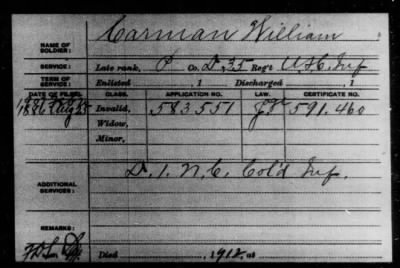 NAME OF SOLDIER: Carman William
SERVICE: Late rank, P Co. D, 35 Reg't U.S.C. Inf
TERM OF SERVICE: Enlisted 1 Discharged 1
DATE OF FILING. CLASS. APPLICATION NO. LAW. CERTIFICATE NO.
1886 Aug Invalid, 583.551 591.460
Widow,
Minor,
ADDITIONAL SERVICES: D. 1. N.C. Col'd Inf.
REMARKS:
Died , 1912, at